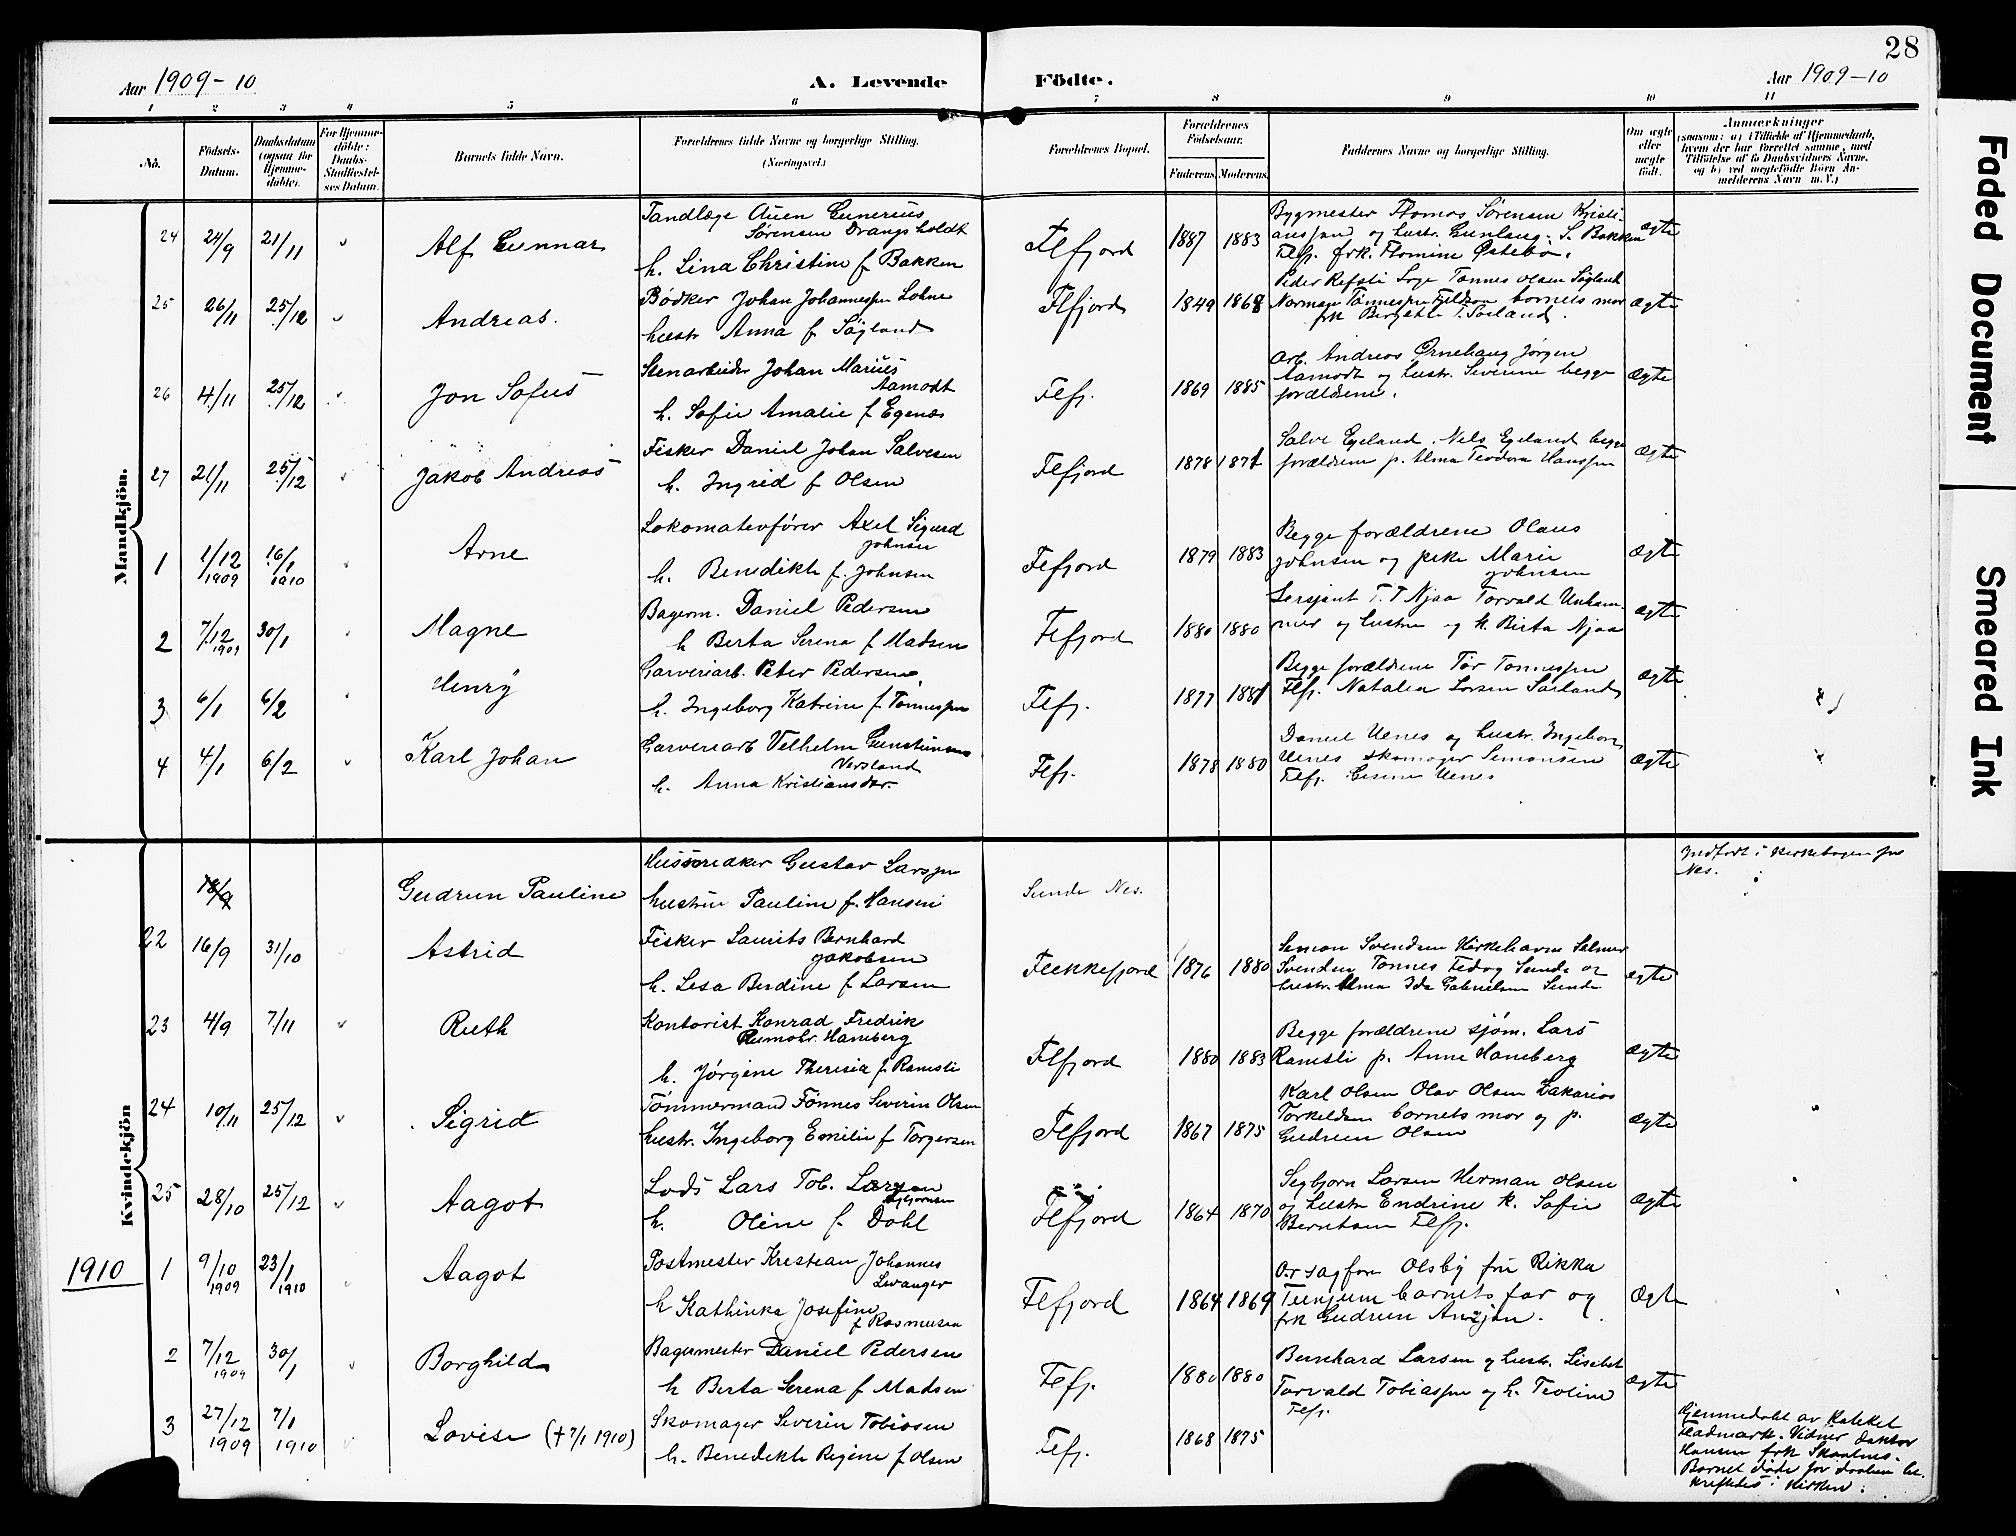 28
Aar 1909-10
A. Levende
Födte.
Aar 1909-10
1 2 3 4 5 6 7 8 9 10 11
No.
Födsels-
Datum.
Daabsdatum
(ogsaa for
Hjemme-
döbte).
For Hjemme-
döbte:
Daabs-
Stadfæstel-
ses Datum.
Barnets fulde Navn.
Forældrenes fulde Navne og borgerlige Stilling.
(Næringsvei.)
Forældrenes Bopæl.
Forældrenes
Födselsaar.
Faderens. Moderens.
Faddernes Navne og borgerlige Stilling.
Om ægte
eller
uægte
födt.
Anmærkninger
(saasom: a) i Tilfælde af Hjemmedaab,
hvem der har forrettet samme, med
Tilföielse af to Daabsvidners Navne,
og b) ved uegtefödte Börn An-
melderens Navn m. V.)
Mandkjön.
24 24/9 21/11 Alf Gunnar
Tandlæge Auen Gunerius
Sørensen Drangsholdt
h. Lina Christine f Bakken
Flfjord 1887 1883
Bygmester Thomas Sørensen Kristi-
ansand og hustr. Gunlaug S. Bakken
Flfj. frk. Thomine Østebø.
ægte
25 26/11 25/12 Andreas.
Bödker Johan Johannessen Lohne
hustr Anna f Søyland
Flfjord 1849 1868
Peder Refsti Loge Tønnes Olsen Søyland
barnets mor
ægte
26 4/11 25/12 Jon Sofus
Stenarbeider Johan Marius
Aamodt
h. Sofie Amalie f Egenæs
Flfj. 1869 1885
Arb. Andreas Ørnehaug Jørgen
Aamodt og hustr. Severine begge
forældrene.
ægte
27 21/11 25/12 Jakob Andreas
Fisker Daniel Johan Salvesen
h. Ingrid f Olsen
Flfjord 1878 1871
Salve Egeland. Nels Egeland begge
forældrene p. Alma Teodora Hanssen
ægte
1 1/12 1909 16/1 1910 Arne
Lokomotivfører Axel Sigurd
Johnsen
h. Benedikte f. Johnsen
Flfjord 1879 1883
Begge forældrene Olaus
Johnsen og pike Marie
Johnsen
ægte
2 7/12 1909 30/1 Magne
Bagerm. Daniel Pedersen
h Berta Serena f Madsen
Flfjord 1880 1880
Sersjant T. T Njaa Torvald Unham-
mer og hustru og k. Berta Njaa
ægte
3 6/1 6/2 Henry
Garveriarb. Peter Pedersen
h. Ingeborg Katrine f Tønnessen
Flfj. 1877 1881
Begge forældrene Tor Tønnessen
Flfj. Natalia Larsen Sørland
ægte
4 4/1 6/2 Karl Johan
Garveriarb Vilhelm
h. Anna Kristiansdtr.
Flfj. 1878 1880
Daniel Uenes og hustr. Ingeborg
Uenes skomager Simonsen
Flfj. Uenes
ægte
Kvindekjön
18/9 Gudrun Pauline
Gustav Larsen
hustru Pauline f. Hansen
Sunde Nes.
Indført i kirkebogen for
Nes.
22 16/9 31/10 Astrid
Fisker Laurits Bernhard
Jakobsen
h. Lisa Berdine f Larsen
Flekkefjord 1876 1880
Simon Svendsen Kirkehavn Salmer
Svendsen Tønnes Fedog Sunde og
hustr. Alma Ida Gabrielsen Sunde
ægte
23 4/9 7/11 Ruth
Kontorist Konrad Fredrik
Rumohr Haneberg
h. Jörgine Theresia f Ramsli
Flfjord 1880 1883
Begge forældrene sjöm. Lars
Ramsli p. Anne Haneberg
ægte
24 10/11 25/12 Sigrid
Tömmermand Tönnes Severin Olsen
hustr. Ingeborg Emilie f Torgersen
Flfjord 1867 1875
Karl Olsen Olav Olsen Zakarias
Torkeldsen barnets mor og p.
Gudrun Olsen
ægte
25 28/10 25/12 Aagot
Lods Lars Tob. Larsen
h. Oline f. Dahl
Flfjord 1864 1870
Segbjorn Larsen Herman Olsen
og hustr Endrine k. Sofie
Berntsen Flfj.
ægte
1910
1 9/10 1909 23/1 1910 Aagot
Postmester Kristian Johannes
Levanger
h Kathinka Josefine
f Rasmusen
Flfjord 1864 1869
O.r sagfører Olsby fru Rikka
Tunjum barnets far og
frk Gudrun Anzjøn.
Ægte
2 7/12 1909 30/1 Borghild
Bagermester Daniel Pedersen
h Berta Serena f Madsen
Flfj. 1880 1880
Bernhard Larsen og hustr. Lisebet
Torvald Tobiassen og h. Teoline
Flfj.
ægte
3 27/12 1909 7/1 1910 Lovise (+ 7/1 1910)
Skomager Severin Tobiasen
h. Benedikte Regine f Olsen
Flfj. 1868 1875
Hjemmedøbt av Kateket
Fladmark. Vidner doktor
Hansen frk Skaalnes.
Barnet døde før daaben be-
kreftedes i kirken.
Faded Document
Smeared Ink